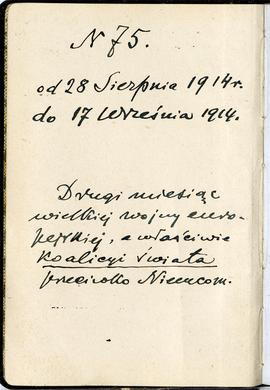 N 75.
od 28 Sierpnia 1914 r.
do 17 Września 1914.
Drugi miesiąc
wielkiej wojny euro-
pejskiej, a właściwie
koalicyi świata
przeciwko Niemcom.